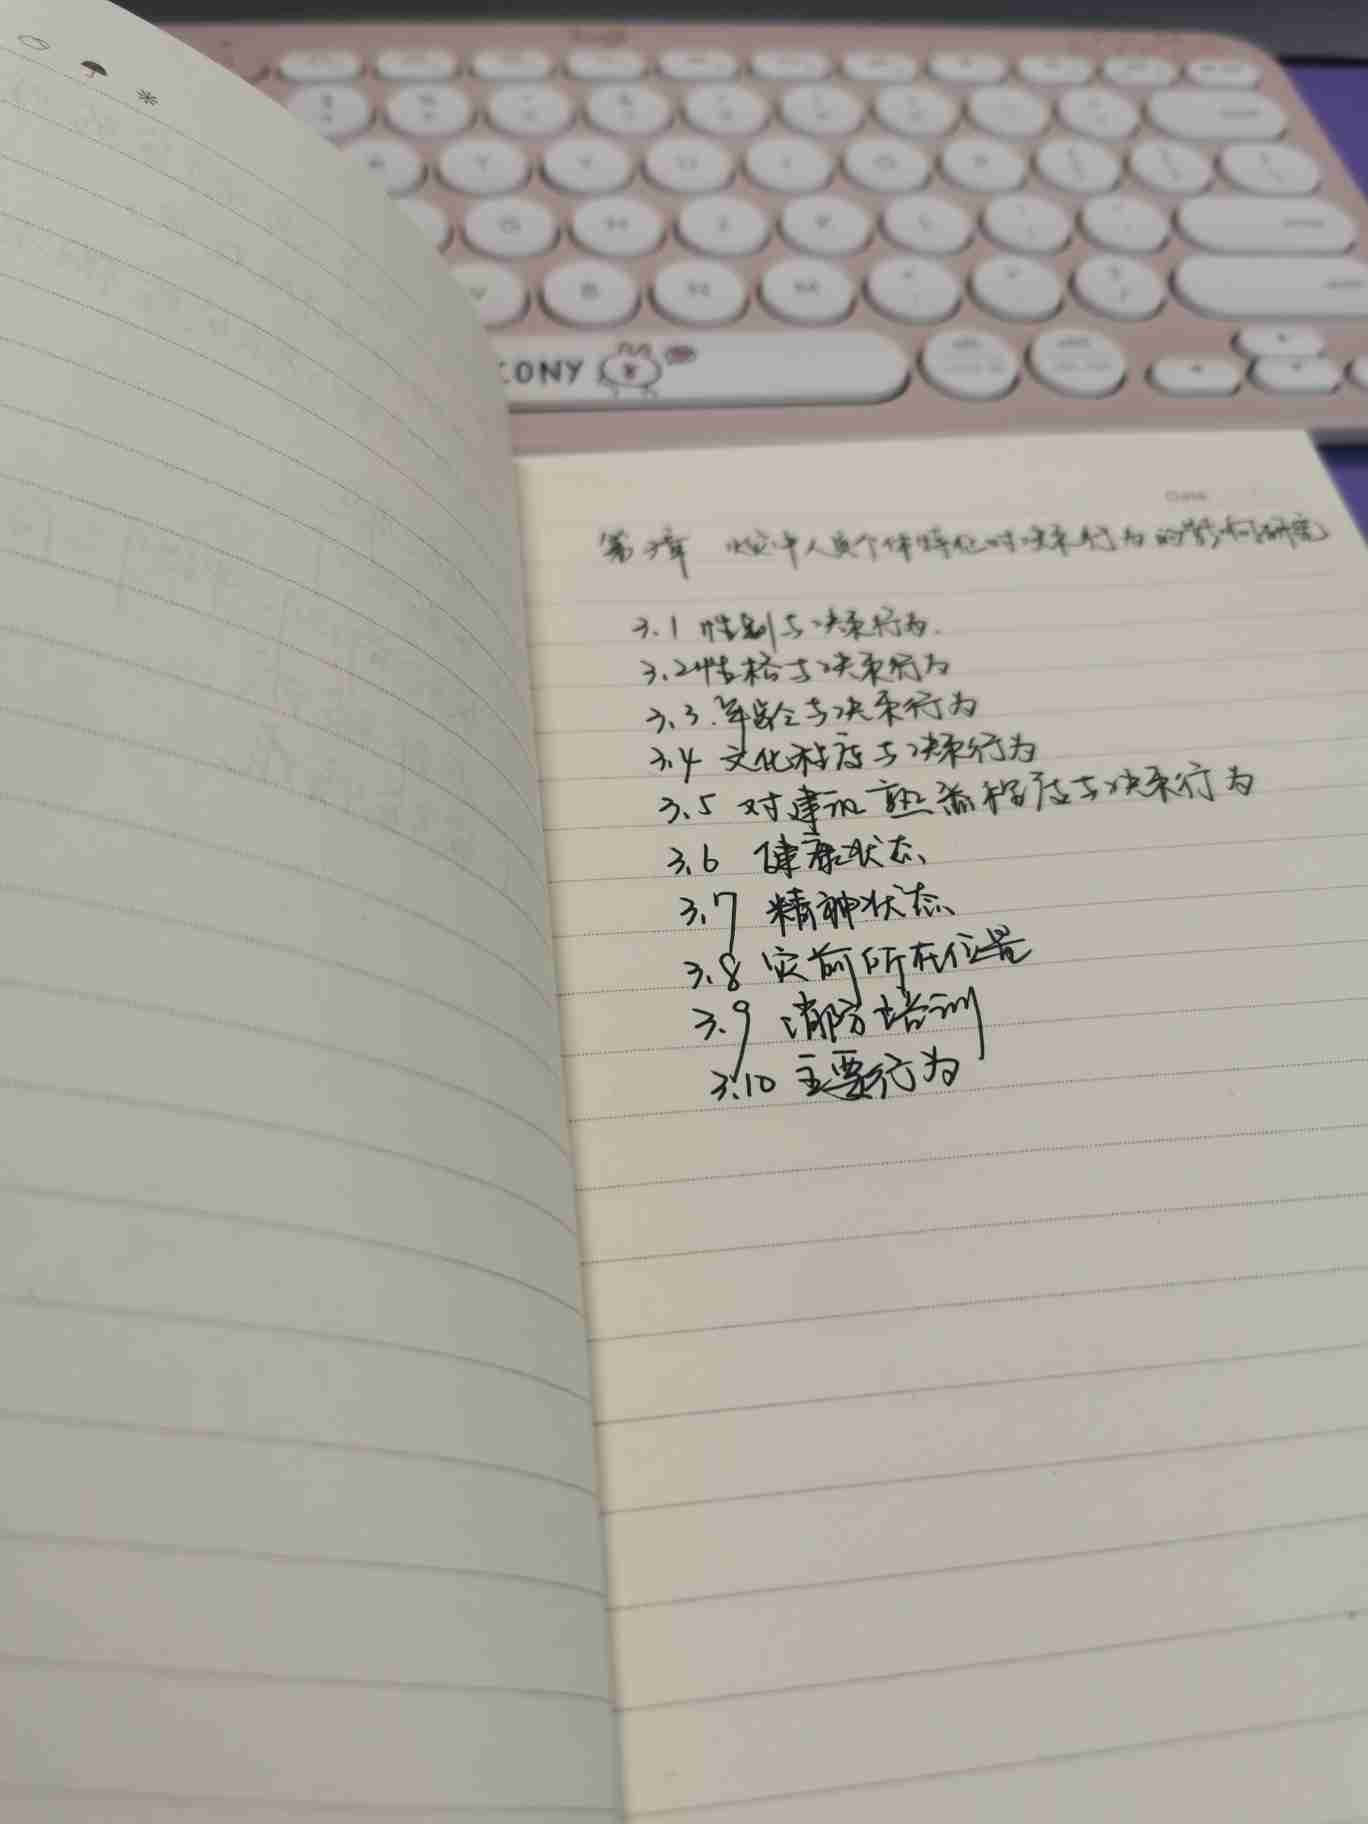 CONY
Date
第3章 火灾中人员个体特征对决策行为的影响研究
3.1 性别与决策行为.
3.2 性格与决策行为
3.3.年龄与决策行为
3.4 文化程度与决策行为
3.5 对建筑熟悉程度与决策行为
3.6 健康状态
3.7 精神状态
3.8 灾前所在位置
3.9 消防培训
3.10 主要行为